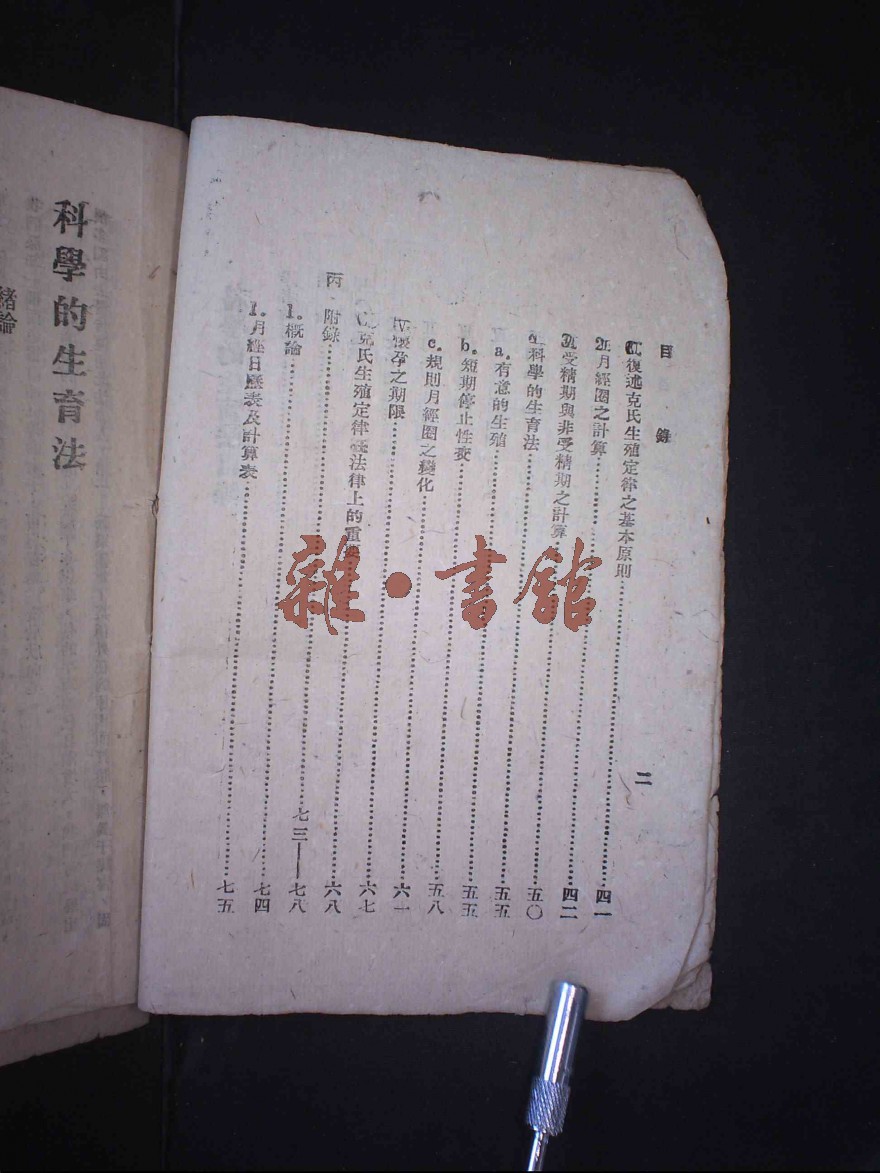 目錄 二
復述克氏生殖定律之基本原則……四一
2.月經圈之計算……四二
3.受精期與非受精期之計算……五〇
4.科學的生育法……五五
a.有意的生殖……五五
b.短期停止性交……五八
c.規則月經圈之變化……六一
懷孕之期限……六七
克氏生殖定律在法律上的重要……六八
丙・附錄……七三——七八
1.概論……七四
1.月經日曆表及計算表……七五
科學的生育法
緒論
雜・書館